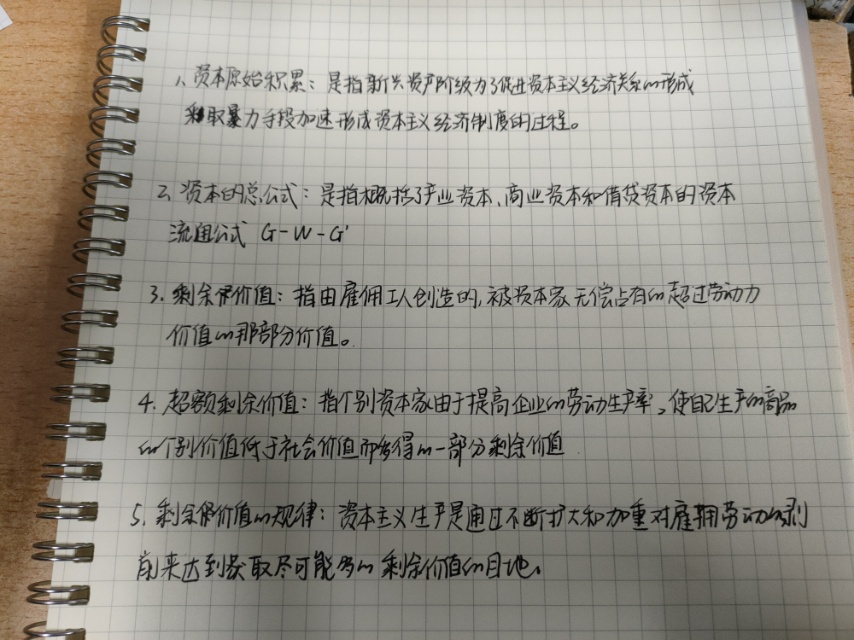 1、资本原始积累：是指新兴资产阶级为了促进资本主义经济关系的形成
采取暴力手段加速形成资本主义经济制度的过程。
2、资本的总公式：是指概括了产业资本、商业资本和借贷资本的资本
流通公式 G-W-G'
3.剩余价值：指由雇佣工人创造的，被资本家无偿占有的超过劳动力
价值的那部分价值。
4.超额剩余价值：指个别资本家由于提高企业的劳动生产率，使自己生产的商品
的个别价值低于社会价值而多得的一部分剩余价值
5.剩余价值的规律：资本主义生产是通过不断扩大和加重对雇拥劳动的剥
削来达到获取尽可能多的剩余价值的目地、